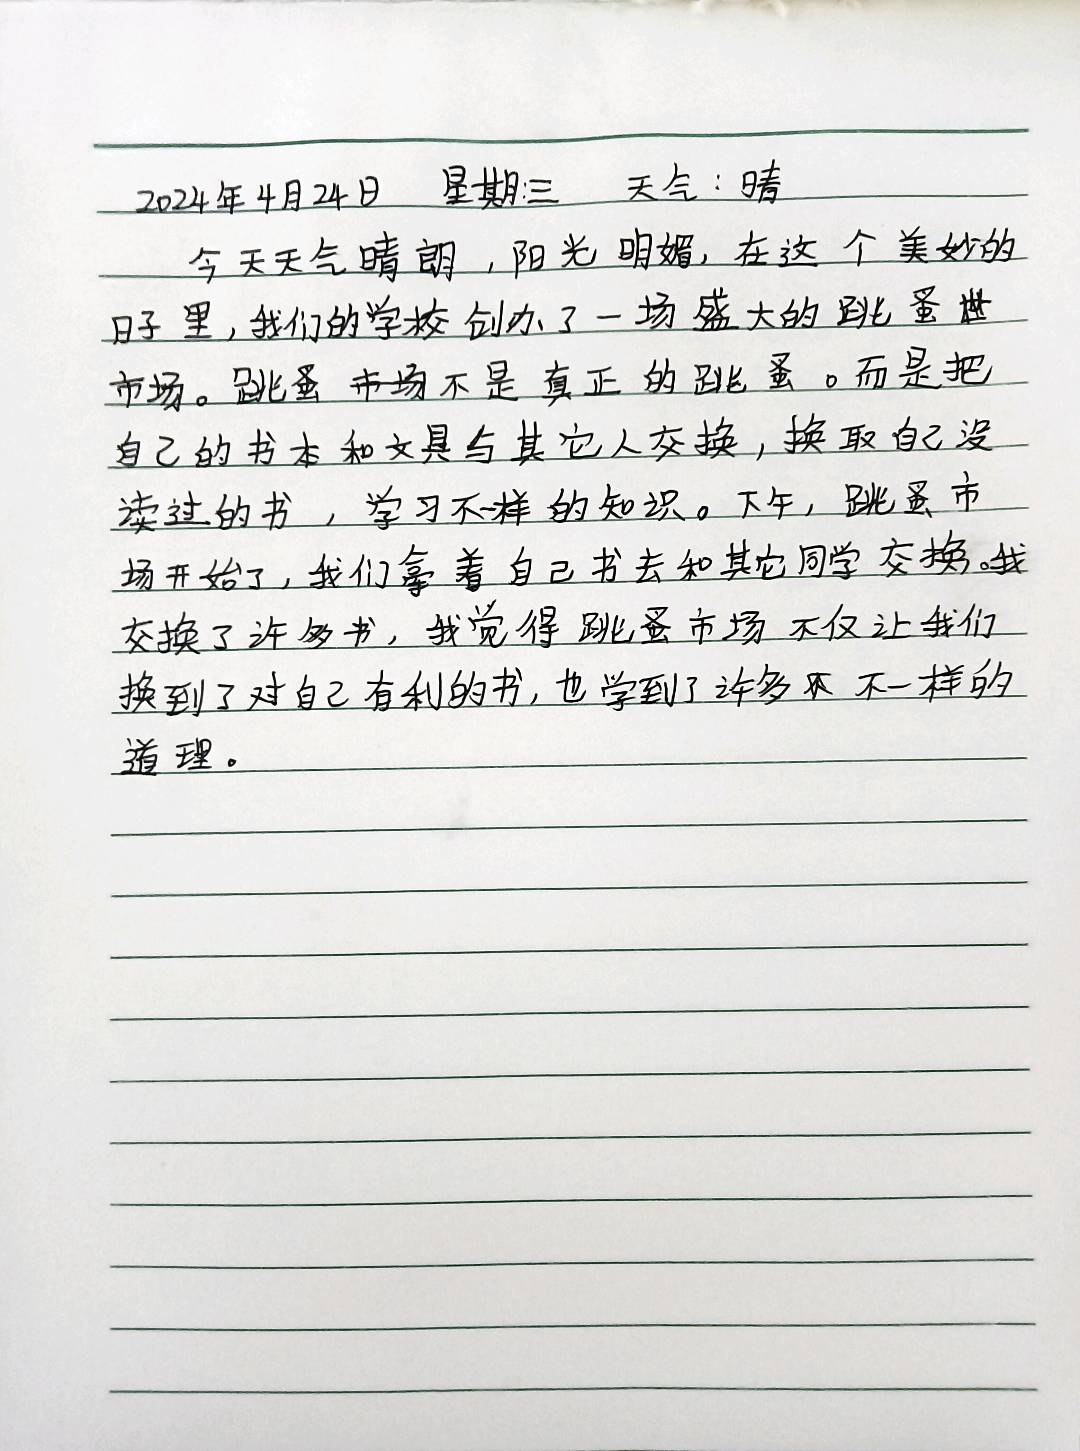 2024年4月24日 星期三 天气：晴
今天天气晴朗，阳光明媚，在这个美妙的
日子里，我们的学校创办了一场盛大的跳蚤
市场。跳蚤市场不是真正的跳蚤。而是把
自己的书本和文具与其它人交换，换取自己没
读过的书，学习不一样的知识。下午，跳蚤市
场开始了，我们拿着自己书去和其它同学交换。我
交换了许多书，我觉得跳蚤市场不仅让我们
换到了对自己有利的书，也学到了许多不一样的
道理。